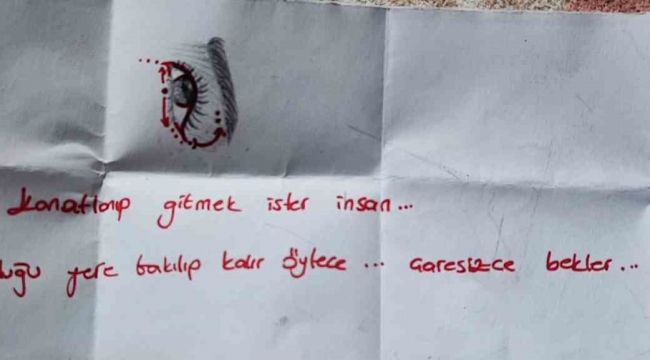 kanatlanıp gitmek ister insan...
yere takılıp kalır öylece... çaresizce bekler...